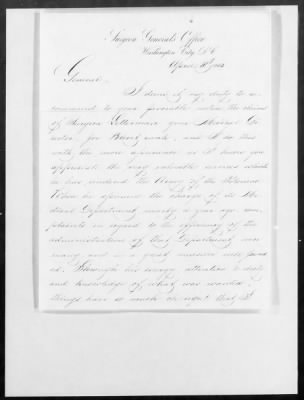 Surgeon General's Office
Washington City, D.C.
April 11th, 1863
General:
I deem it my duty to re-
commend to your favorable notice the claims
of Surgeon Letterman your Medical Di-
rector, for Brevet rank, and I do this
with the more assurance as I know you
appreciate the very valuable services which
he has rendered the Army of the Potomac
When he assumed the charge of its Me-
dical Department nearly a year ago com-
plaints in regard to the efficiency of the
administration of that Department were
many and in a great measure well found-
ed. Through his energy attention to duty
and knowledge of what was wanted,
things have so much changed that it